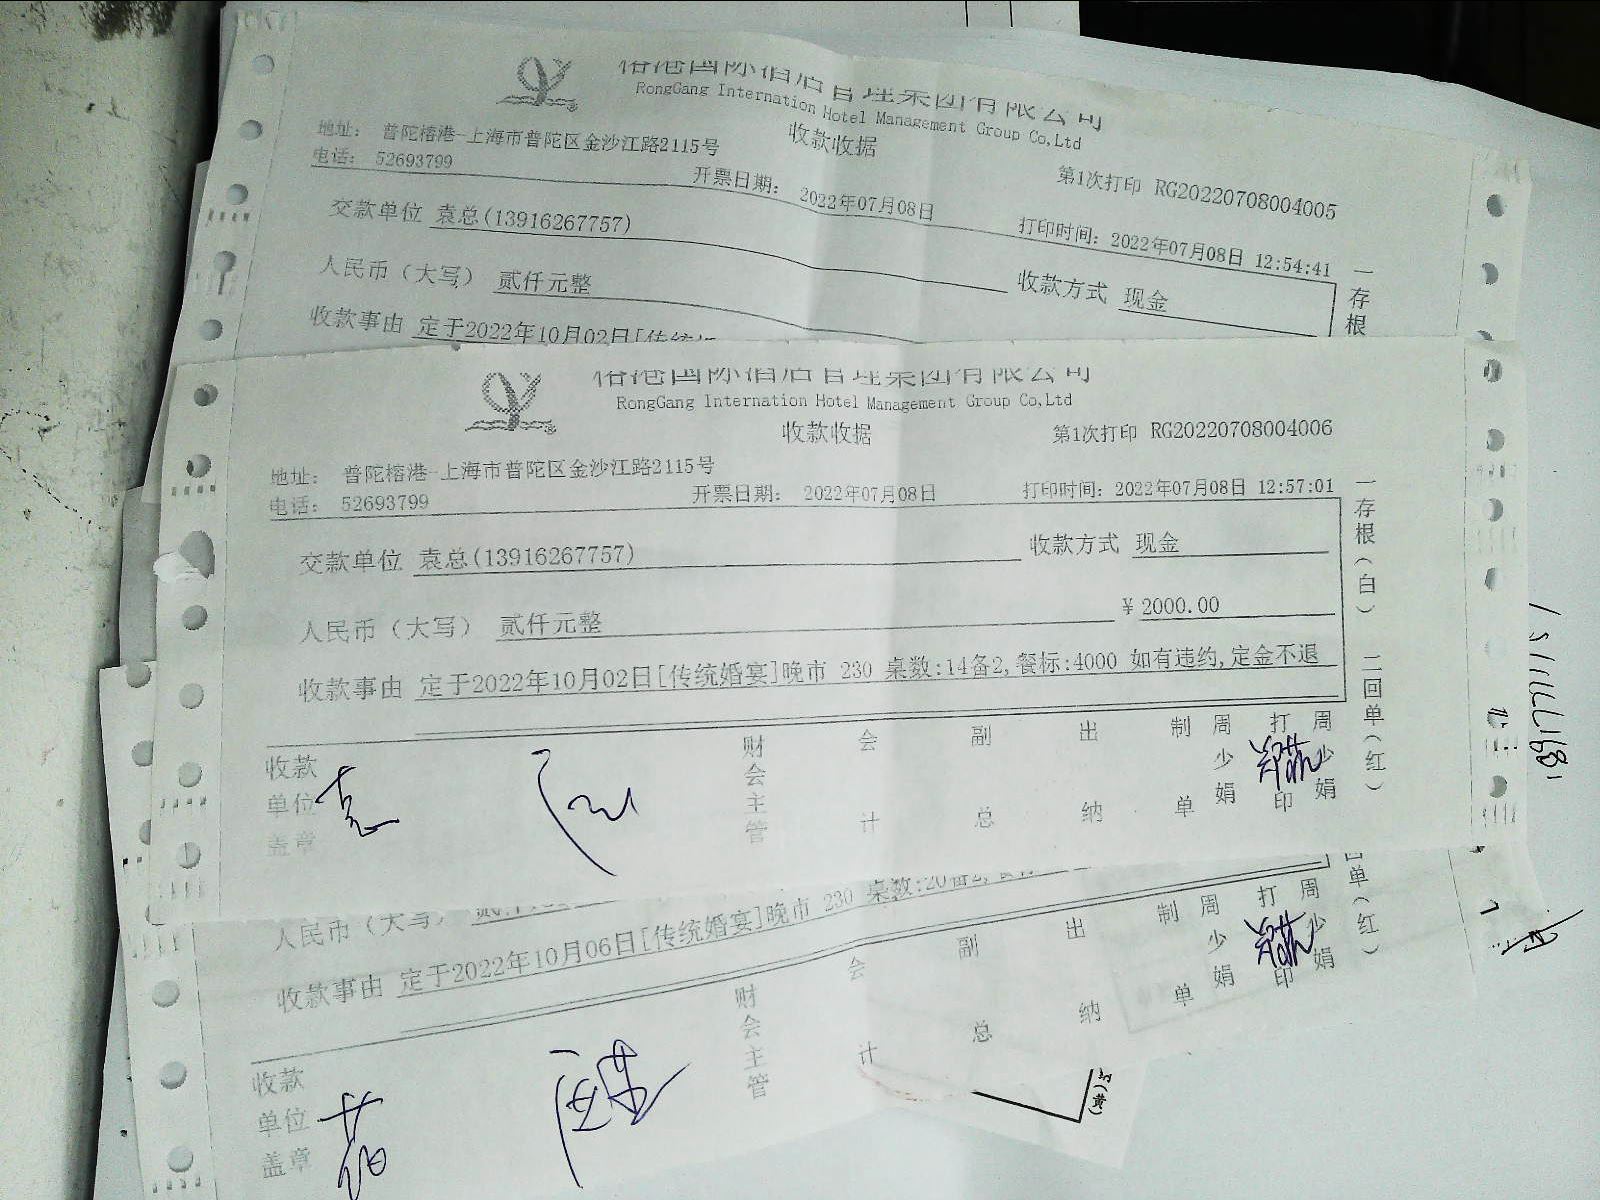 榕港国际酒店管理集团有限公司
RongGang Internation Hotel Management Group Co,Ltd
收款收据
第1次打印 RG20220708004005
地址: 普陀榕港-上海市普陀区金沙江路2115号
电话: 52693799
开票日期: 2022年07月08日
打印时间: 2022年07月08日 12:54:41
交款单位 袁总(13916267757)
收款方式 现金
人民币(大写) 贰仟元整
收款事由 定于2022年10月02日[传统
一存根
榕港国际酒店管理集团有限公司
RongGang Internation Hotel Management Group Co,Ltd
收款收据
第1次打印 RG20220708004006
地址: 普陀榕港-上海市普陀区金沙江路2115号
电话: 52693799
开票日期: 2022年07月08日
打印时间: 2022年07月08日 12:57:01
交款单位 袁总(13916267757)
收款方式 现金
人民币(大写) 贰仟元整
¥ 2000.00
收款事由 定于2022年10月02日[传统婚宴]晚市 230 桌数:14备2,餐标:4000 如有违约,定金不退
一存根(白) 二回单(红)
收款单位盖章 袁
财会主管
会计
副总
出纳
制单 周少娟
打印 周少娟
人民币(大写)
收款事由 定于2022年10月06日[传统婚宴]晚市 230 桌数:20备2,
回单(红)
收款单位盖章
财会主管
会计
副总
出纳
制单 周少娟
打印 周少娟
(黄)